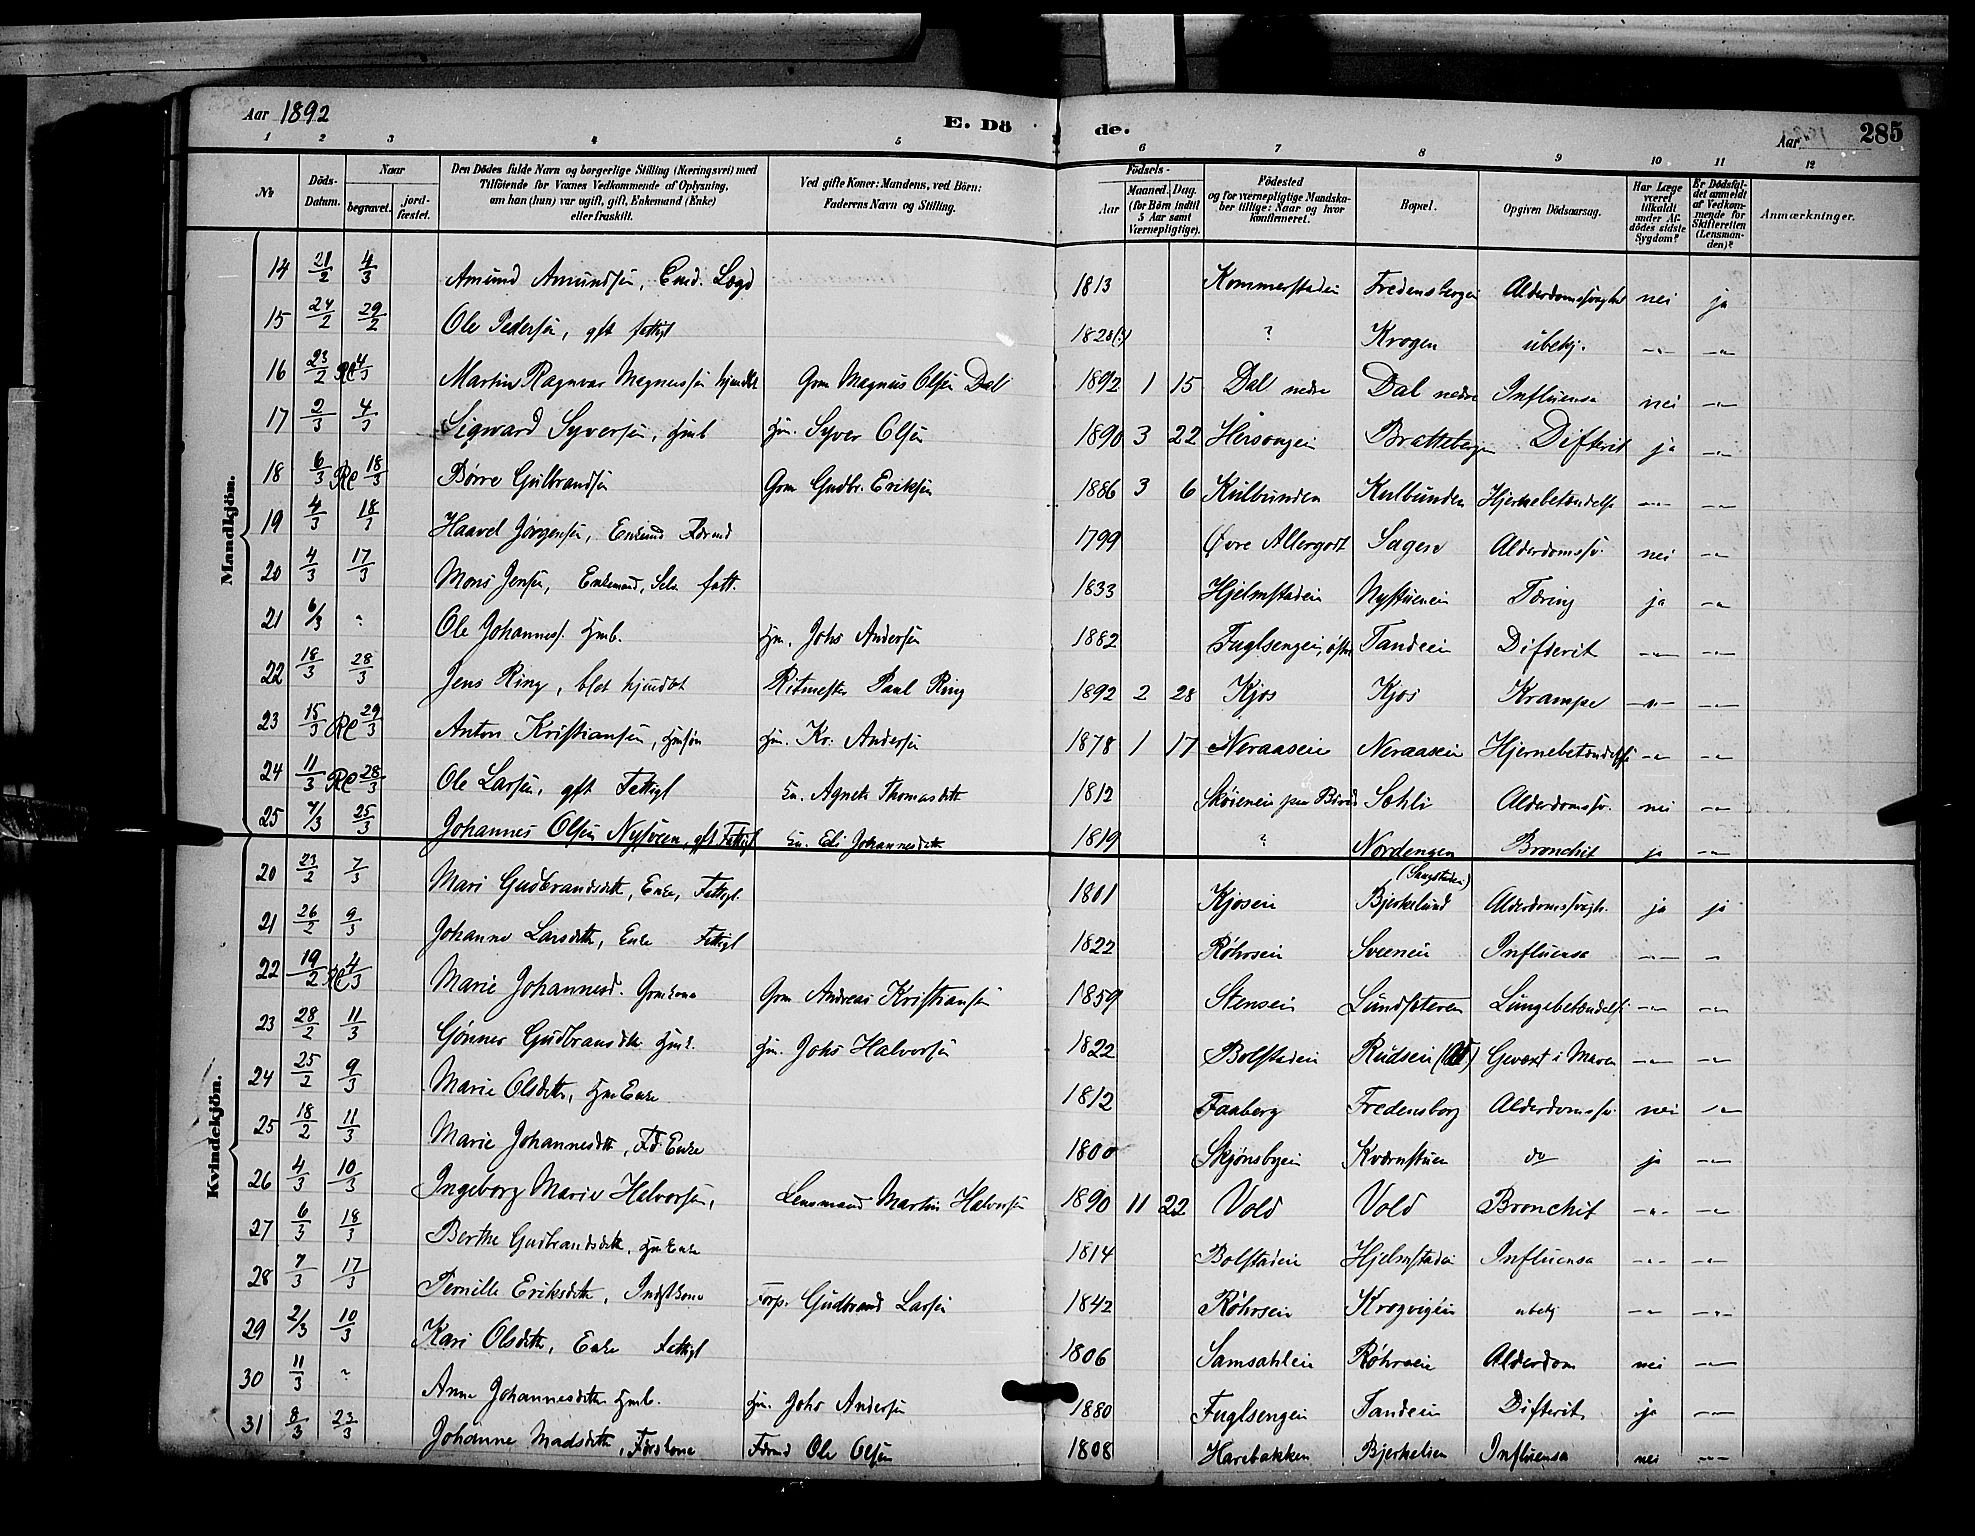 Aar 1892
E. Dö de.
Aar
285
1 2 3 4 5 6 7 8 9 10 11 12
№
Döds-Datum.
Naar
begravet.
jord-fæstet.
Den Dödes fulde Navn og borgerlige Stilling (Næringsvei) med Tilföiende for Voxnes Vedkommende af Oplysning, om han (hun) var ugift, gift, Enkemand (Enke) eller fraskilt.
Ved gifte Koner: Mandens, ved Börn: Faderens Navn og Stilling.
Födsels-
Aar
Maaned. Dag.
(for Börn indtil 5 Aar samt Værnepligtige).
Födested og for værnepligtige Mandskaber tillige: Naar og hvor konfirmeret.
Bopæl.
Opgiven Dödsaarsag.
Har Læge været tilkaldt under Afdödes sidste Sygdom?
Er Dödsfaldet anmeldt af Vedkommende for Skifteretten (Lensmanden)?
Anmærkninger.
Mandkjön.
14 21/2 4/3 Amund Amundsen, Enkd. Lægd 1813 Kommerstadeie Fredensborgeie Alderdomssvaghet nei ja
15 24/2 29/2 Ole Pedersen, gift fattigl 1820(?) ? Krogen ubekj. -"- -"-
16 23/2 Re 4/3 Martin Ragnvar Magnussen hjemdøbt Grm Magnus Olsen Dal 1892 1 15 Dal nedre Dal nedre Influensa nei -"-
17 2/3 4/3 Sigward Syversen, Hmb Hm. Syver Olsen 1890 3 22 Difterit ja -"-
18 6/3 Re 18/3 Børre Gulbrandsen Grm Gudbr. Eriksen 1886 3 6 Kulbunden Kulbunden Hjernebetændelse -"-
19 4/3 18/3 Haavel Jørgensen, Enkemd Fdrmd 1799 Øvre Allergodt Sagen Alderdomssv. nei -"-
20 4/3 17/3 Mons Jensen, Enkemand, Selv. fatt. 1833 Hjelmstadeie Nystueneie Tæring ja -"-
21 6/3 ? Ole Johanness. Hmb. Hm. Johs Andersen 1882 Fuglsengeie, østre Tandeeie Difterit -"- -"-
22 18/3 28/3 Jens Ring, blot hjemdøbt Ritmester Paul Ring 1892 2 28 Kjos Kjos Krampe -"- -"-
23 15/3 Re 29/3 Anton Kristiansen, Hmsøn Hm. Kr. Andersen 1878 1 17 Neraaseie Neraaseie Hjernebetændelse -"- -"-
24 11/3 Re 28/3 Ole Larsen, gift Fattigl En. Agnete Thomasdtr 1812 Skøieneie paa Biri Sæhli Alderdomssv. nei -"-
25 7/3 25/3 Johannes Olsen Nysveen, gift Fattigl En. Eli Johannesdtr 1819 ? Nordengen Bronchit ja -"-
Kvindekjön.
20 23/2 7/3 Mari Gudbrandsdtr, Enke, Fattigl. 1801 Kjoseie (Saugstaden) Bjerkelund Alderdomssvagh. ja ja
21 26/2 9/3 Johanne Larsdtr, Enke Fattigl 1822 Røhrseie Sveeneie Influensa -"- -"
22 19/2 Re 4/3 Marie Johannesd. Grmkone Grm Andreas Kristiansen 1859 Stenseie Lundsæteren Lungebetændelse -"- -"-
23 28/2 11/3 Gønner Gudbransdtr Hmk. Hm. Johs Halvorsen 1822 Bolstadeie Rudseie Gevæxt i Maven -"- -"-
24 25/2 9/3 Marie Olsdtr, HmEnke 1812 Faaberg Fredensborg Alderdomssv. nei -"-
25 18/2 11/3 Marie Johannesdtr, Fd. Enke 1800 Skjønsbyeie Kværnstuen do ja -"-
26 4/3 10/3 Ingeborg Marie Halvorsen, Lensmand Martin Halvorsen 1890 11 22 Vold Vold Bronchit -"- -"-
27 6/3 18/3 Berthe Gudbrandsdtr, HmEnke 1814 Bolstadeie Hjelmstadeie Influensa -"- -"-
28 7/3 17/3 Pernille Eriksdtr, Indstkone Forp. Gudbrand Larsen 1842 Røhrseie Krogvigeie ubekj -"- -"-
29 2/3 10/3 Kari Olsdtr, Enke Fattigl 1806 Samsahleie Røhrseie Alderdom nei -"-
30 11/3 ? Anne Johannesdtr Hmb. Hm. Johs Andersen 1880 Fuglsengeie Tandeeie Difterit ja -"-
31 8/3 23/3 Johanne Madsdtr, Fdrdkone Fdrmd Ole Olsen 1808 Harebakken Bjerkelien Influensa nei -"-